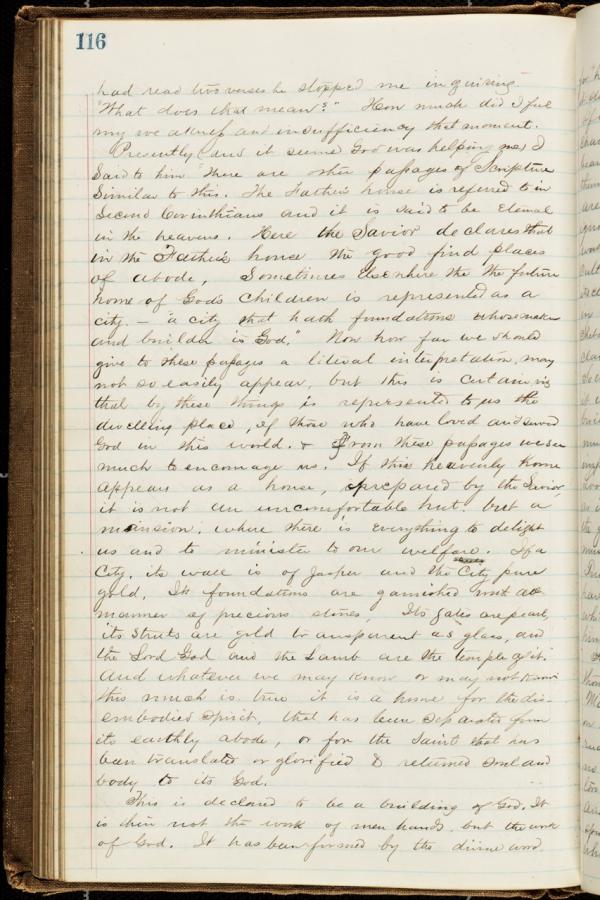 116
had read two verses he stopped me inquiring
"What does that mean?" How much did I feel
my weakness and insufficiency that moment.
Presently (and it seemed God was helping me) I
said to him There are other passages of Scripture
Similar to this. The Father's house is referred to in
Second Corinthians and it is said to be Eternal
in the heavens. Here the Savior declares that
in the Father's house the good find places
of abode, Sometimes Elsewhere the the future
home of Gods children is represented as a
city. – "a city that hath foundations whose maker
and builder is God." Now how far we should
give to these passages a literal interpretation, may
not so easily appear, but this is certain viz
that by these things is represented to us the
dwelling place, of those who have loved and served
God in this world. & From these passages we see
much to encourage us. If this heavenly home
appears as a house, prepared by the Savior,
it is not an uncomfortable hut. but a
mansion, where there is everything to delight
us and to minister to our welfare. If a
City, its wall is of Jasper and the City pure
gold, Its foundations are garnished with all
manner of precious stones, Its gates are pearl,
its Streets are gold transparent as glass, and
the Lord God and the Lamb are the temple of it.
And whatever we may know or may not know
this much is true it is a home for the dis-
embodied spirit, that has been separated from
its earthly abode, or for the Saint that has
been translated or glorified & returned Soul and
body to its God.
This is declared to be a building of God. It
is then not the work of men hands but the work
of God. It has been formed by the divine word